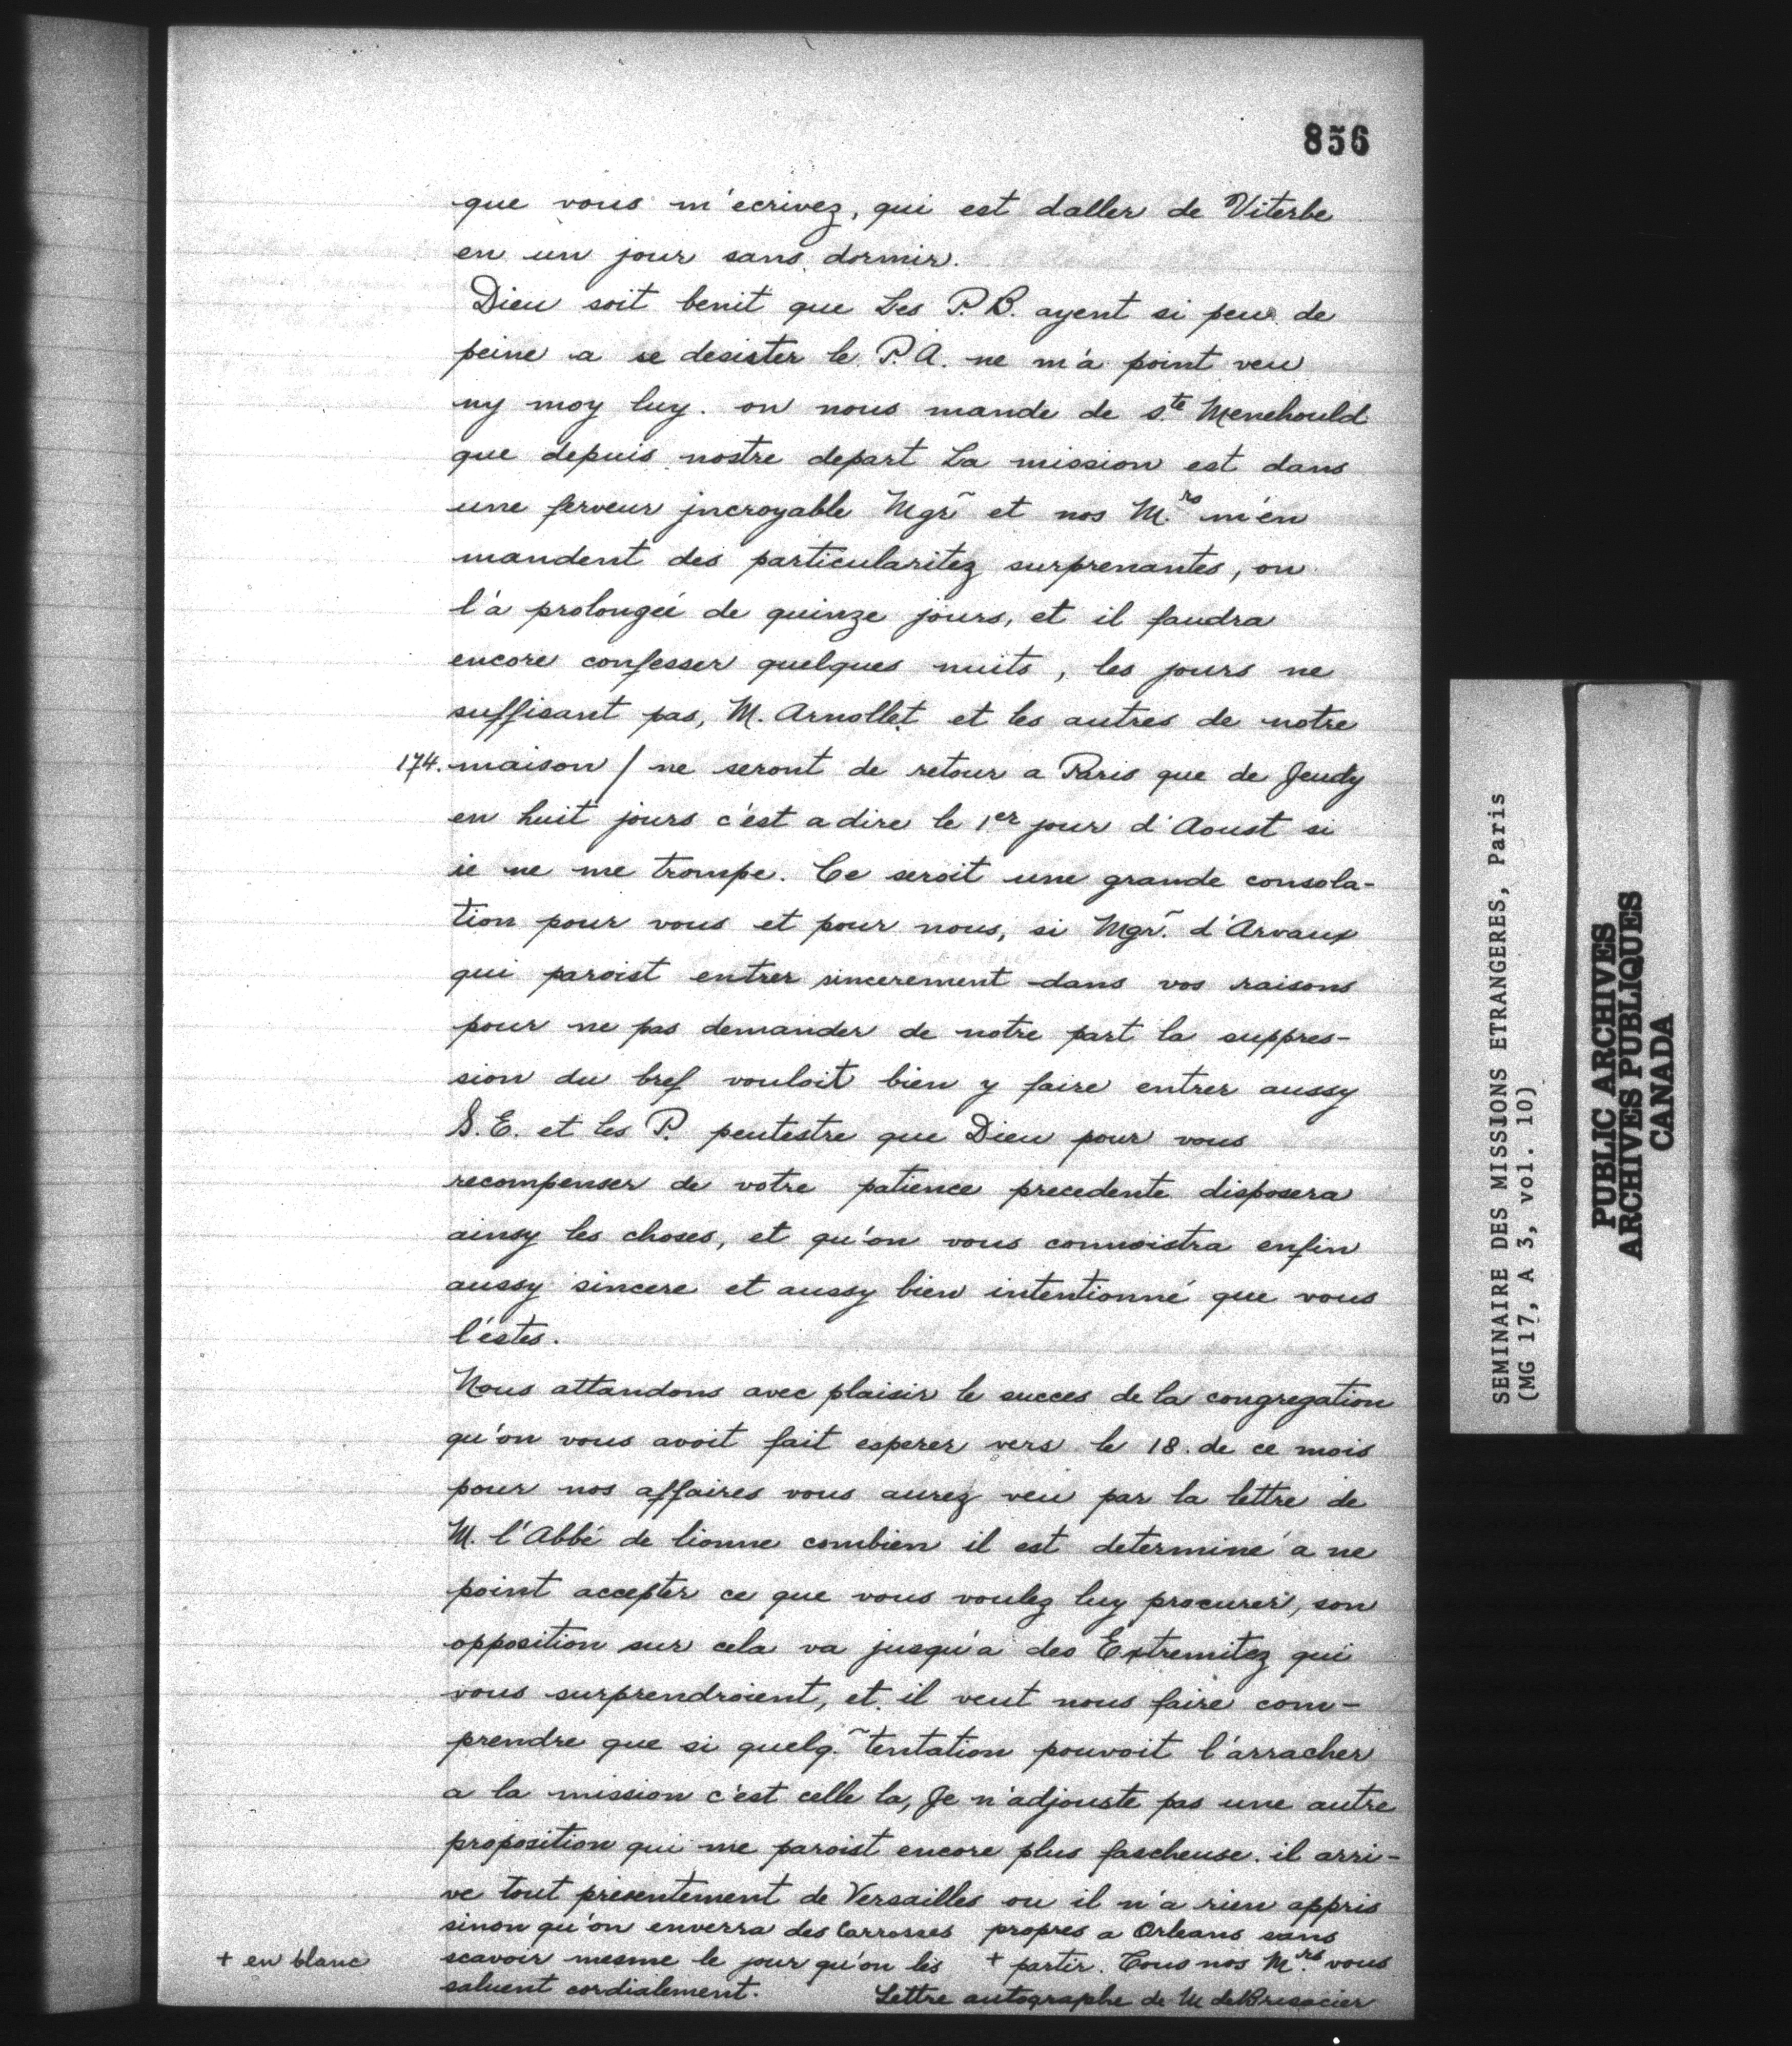 856
que vous m'ecrivez, qui est daller de Viterbe
en un jour sans dormir.
Dieu soit benit que Les P. B. ayent si peu de
peine a se desister le P. A. ne m'a point veu
ny moy luy. on nous mande de ste Menehould
que depuis nostre depart La mission est dans
une ferveur jncroyable Mgr̃ et nos M.rs m'en
mandent des particularitez surprenantes, on
l'a prolongée de quinze jours, et il faudra
encore confesser quelques nuits, les jours ne
suffisant pas, M. Arnollet et les autres de notre
174. maison / ne seront de retour a Paris que de Jeudy
en huit jours c'est a dire le 1er jour d'Aoust si
ie ne me trompe. Ce seroit une grande consola-
tion pour vous et pour nous, si Mgr̃. d'Arvaux
qui paroist entrer sincerement dans vos raisons
pour ne pas demander de notre part la suppres-
sion du bref vouloit bien y faire entrer aussy
S. E. et les P. peutestre que Dieu pour vous
recompenser de votre patience precedente disposera
ainsy les choses, et qu'on vous connoistra enfin
aussy sincere et aussy bien intentionné que vous
l'éstes.
Nous attandons avec plaisir le succes de la congregation
qu'on vous avoit fait esperer vers le 18. de ce mois
pour nos affaires vous aurez veu par la lettre de
M. l'Abbé de lionne combien il est determiné a ne
point accepter ce que vous voulez luy procurer, son
opposition sur cela va jusqu'a des Extremitez qui
vous surprendroient, et il veut nous faire com-
prendre que si quelq.̃ tentation pouvoit l'arracher
a la mission c'est celle la, Je n'adjouste pas une autre
proposition qui me paroist encore plus fascheuse. il arri-
ve tout presentement de Versailles ou il n'a rien appris
sinon qu'on enverra des Carrosses propres a Orleans sans
+ en blanc scavoir mesme le jour qu'on les + partir. Tous nos M.rs vous
saluent cordialement. Lettre autographe de M de Brisacier
SEMINAIRE DES MISSIONS ETRANGERES, Paris
(MG 17, A 3, vol. 10)
PUBLIC ARCHIVES
ARCHIVES PUBLIQUES
CANADA